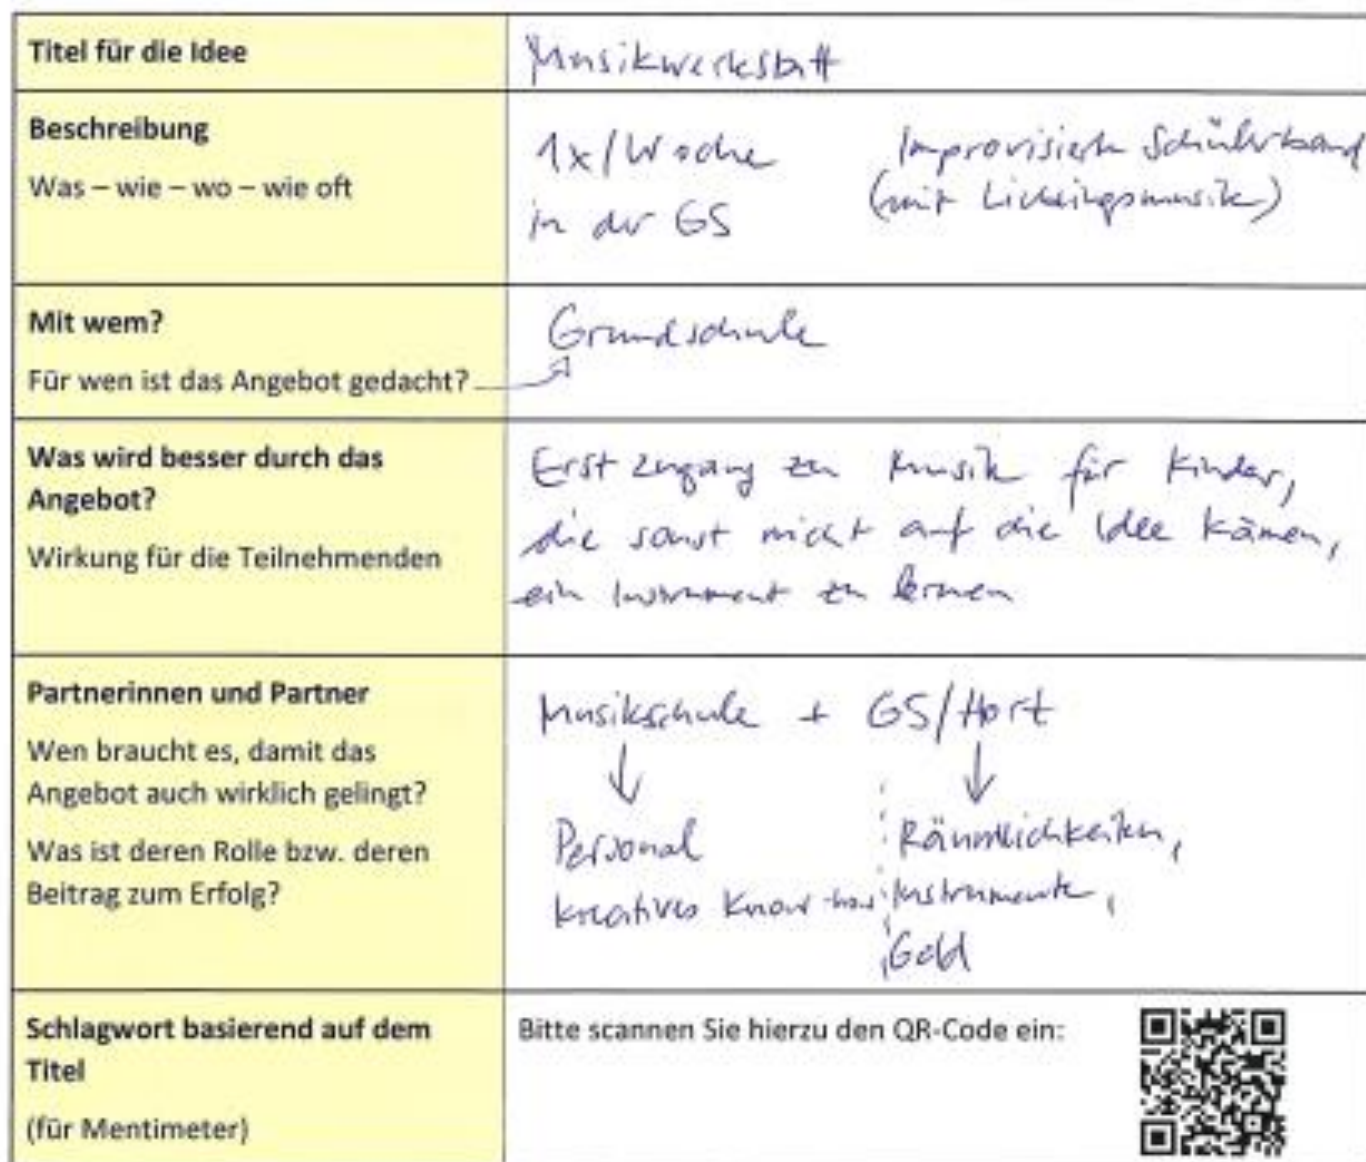 Titel für die Idee
Musikwerkstatt
Beschreibung
Was – wie – wo – wie oft
1x/Woche
in der GS
Improvisierte Schülerband
(mit Lieblingsmusik)
Mit wem?
Für wen ist das Angebot gedacht?
Grundschule
Was wird besser durch das
Angebot?
Wirkung für die Teilnehmenden
Erstzugang zu Musik für Kinder,
die sonst nicht auf die Idee kämen,
ein Instrument zu lernen
Partnerinnen und Partner
Wen braucht es, damit das
Angebot auch wirklich gelingt?
Was ist deren Rolle bzw. deren
Beitrag zum Erfolg?
Musikschule + GS/Hort
Personal
kreatives Know-how
Räumlichkeiten,
Instrumente,
Geld
Schlagwort basierend auf dem
Titel
(für Mentimeter)
Bitte scannen Sie hierzu den QR-Code ein: